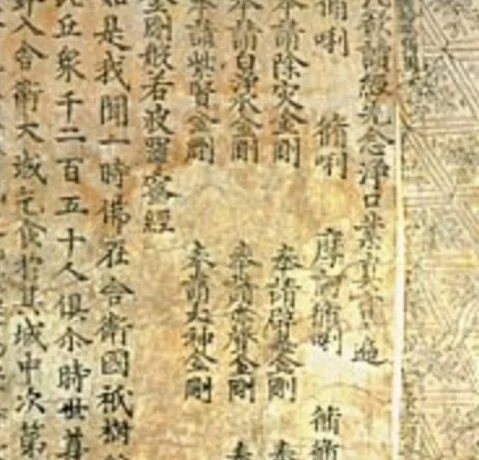 欲讀經先念淨口業真言一遍
脩唎 脩唎 摩訶脩唎 脩脩
奉請除灾金剛 奉請辟毒金剛 奉
奉請白淨水金剛 奉請赤聲金剛 奉
奉請紫賢金剛 奉請大神金剛
金剛般若波羅蜜經
如是我聞一時佛在舍衛國祇樹
比丘衆千二百五十人俱尒時世尊
入舍衛大城乞食於其城中次第